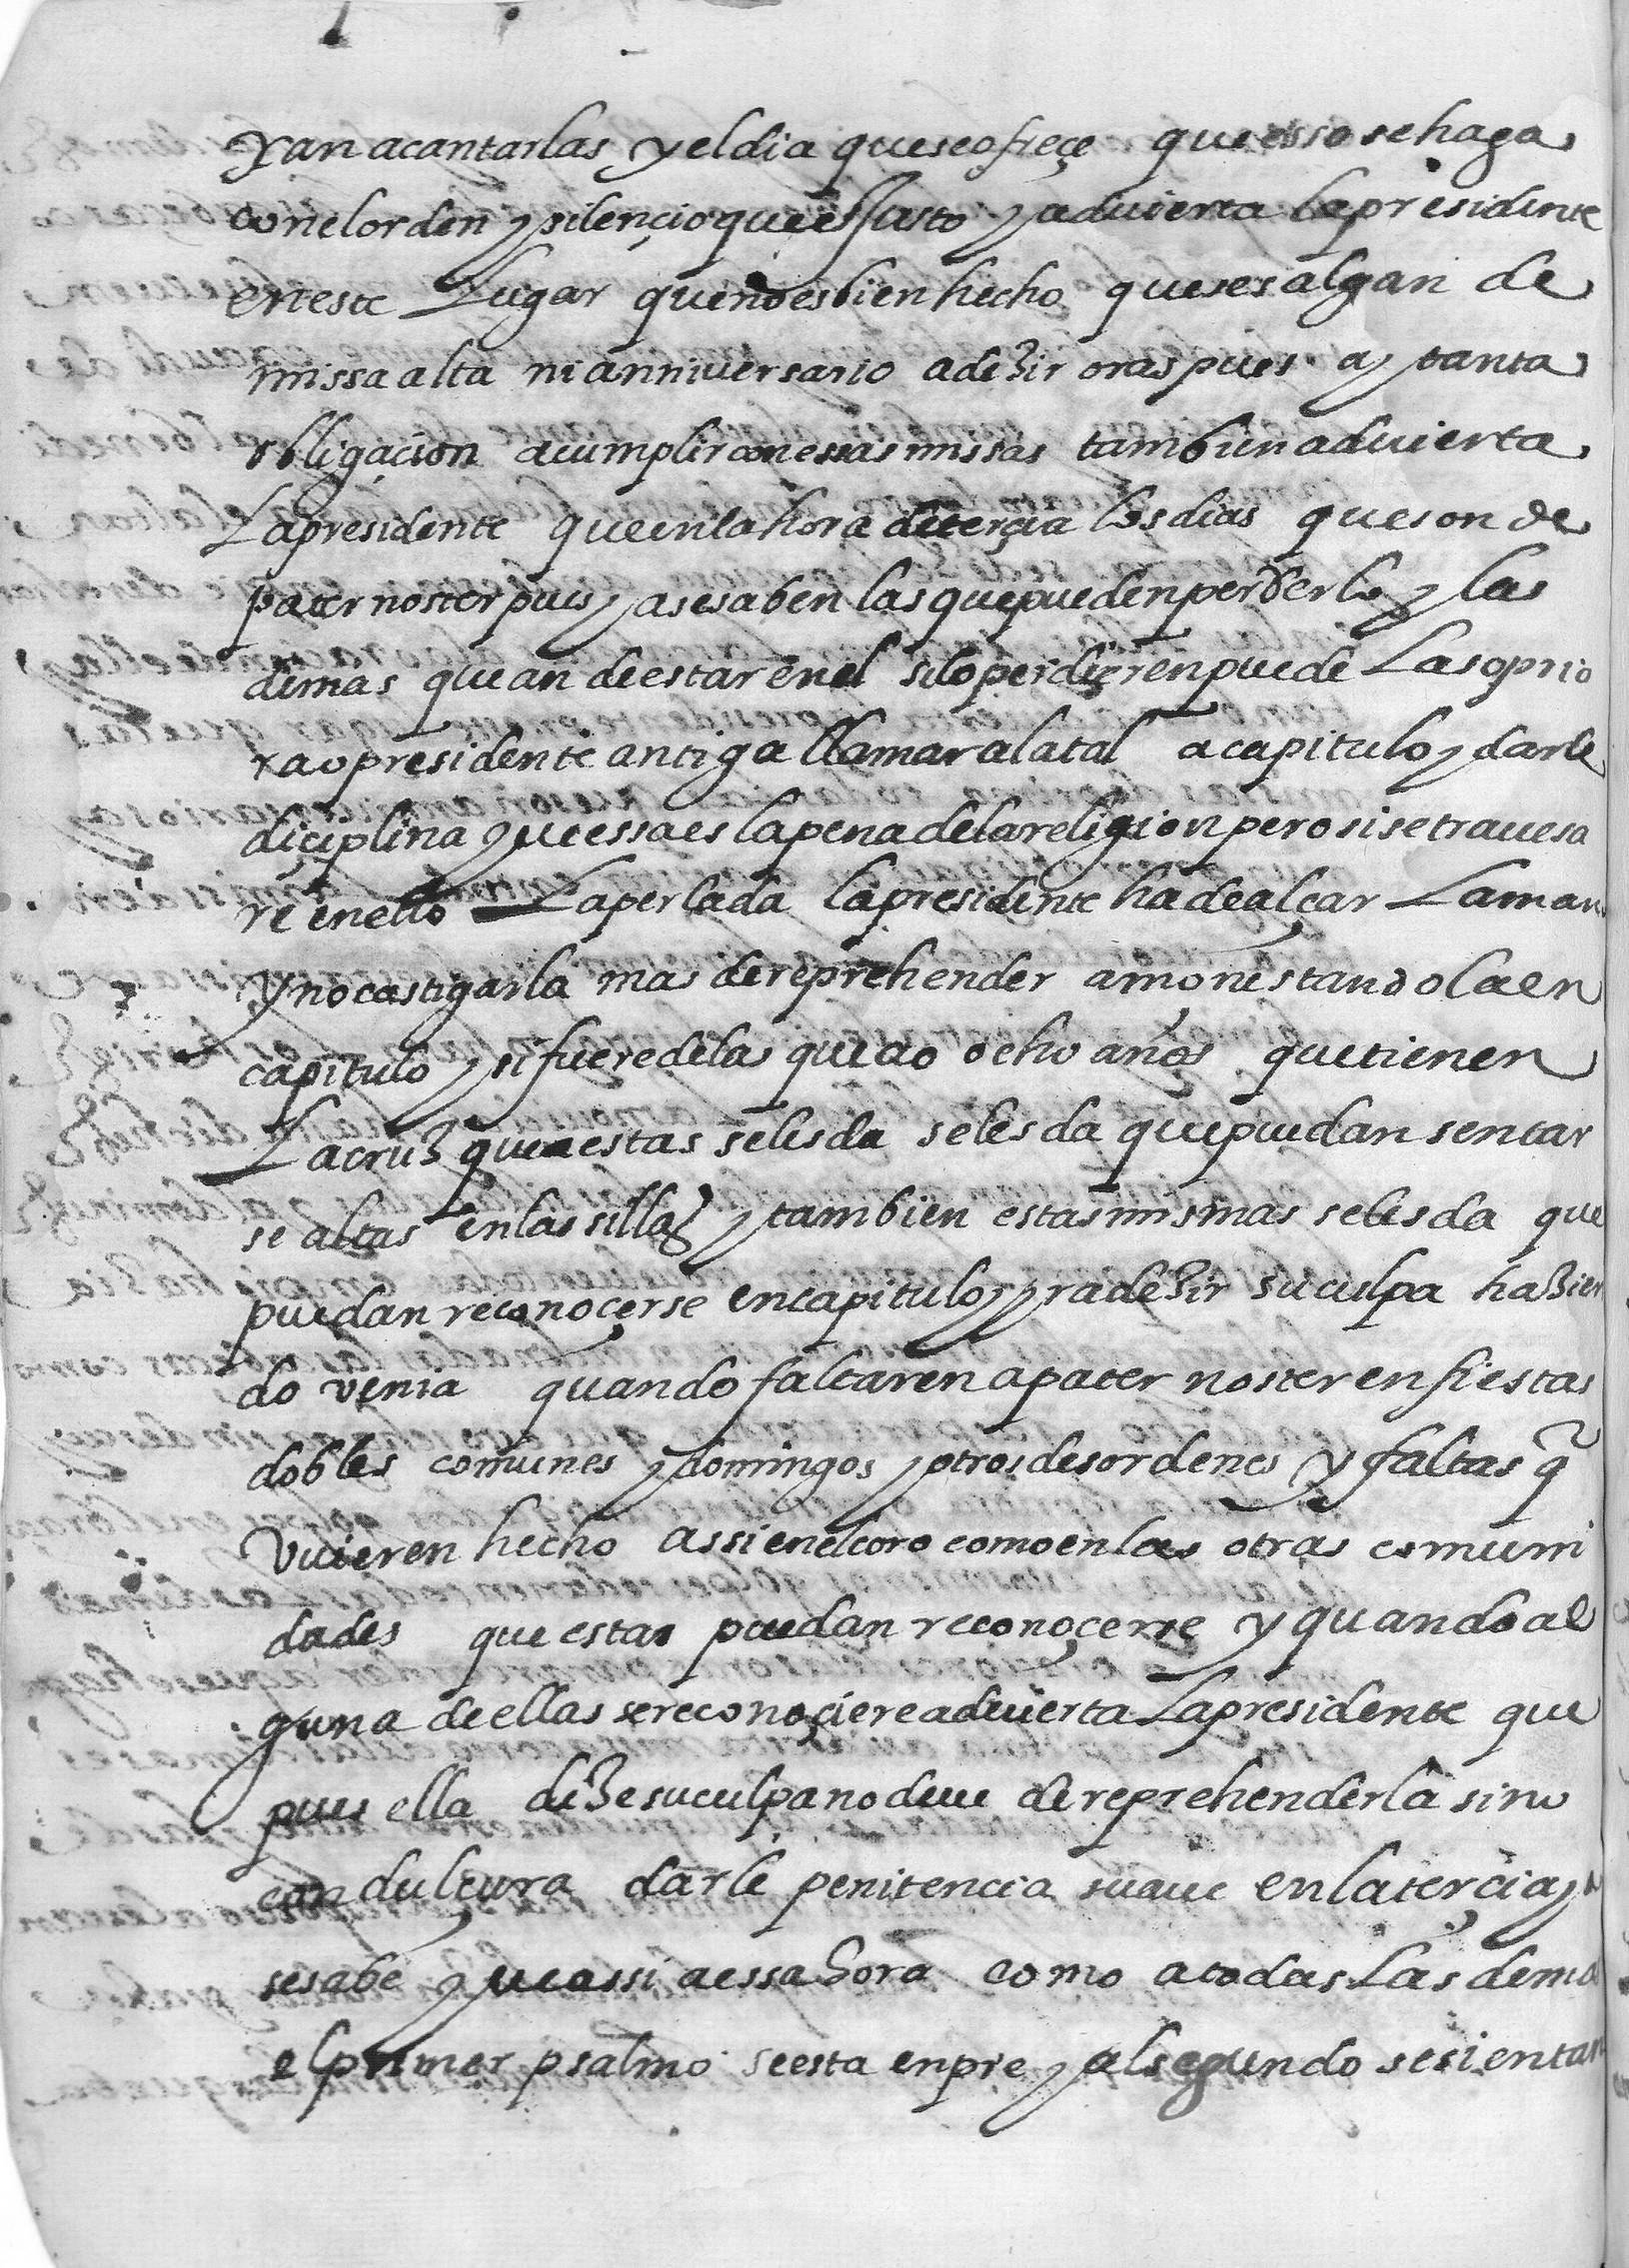 yan a cantarlas y el dia que se ofreçe que esso se haga
con el orden y silençio que es Justo y aduierta la presidente
en este Lugar que no es bien hecho que se salgan de
missa alta ni anniuersario a deZir oras pues ay tanta
obligaçion a cumplir con essas missas tambien aduierta
La presidente que en la hora de terçia los dias que son de
pater noster pues ya se saben las que pueden perderlo y las
demas que an de estar en el si lo perdieren puede La soprio
ra o presidente antiga llamar a la tal a capitulo y darle
diçiplina que essa es la pena de la religion pero si se trauesa
re en ello La perlada la presidente ha de alçar La mano
y no castigarla mas de reprehender amonestandola en
capitulo y si fuere de las que ao ocho años que tienen
La cruZ que a estas se les da se les da que puedan sentar
se altas en las sillas y tambien estas mismas se les da que
puedan reconoçerse en capitulo yra deZir su culpa haZien
do venia quando faltaren a pater noster en fiestas
dobles comunes y domingos y otros desordenes y faltas q̃
vuieren hecho assi en el coro como en las otras comuni
dades que estas puedan reconoçerse y quando al
guna de ellas se reconoçiere aduierta La presidente que
pues ella diZe su culpa no deue de reprehenderla sino
con dulçura darle penitencia suaue en la terçia ya
se sabe que assi a essa hora como a todas Las demas
el primer psalmo se esta en pie y al segundo se sientan